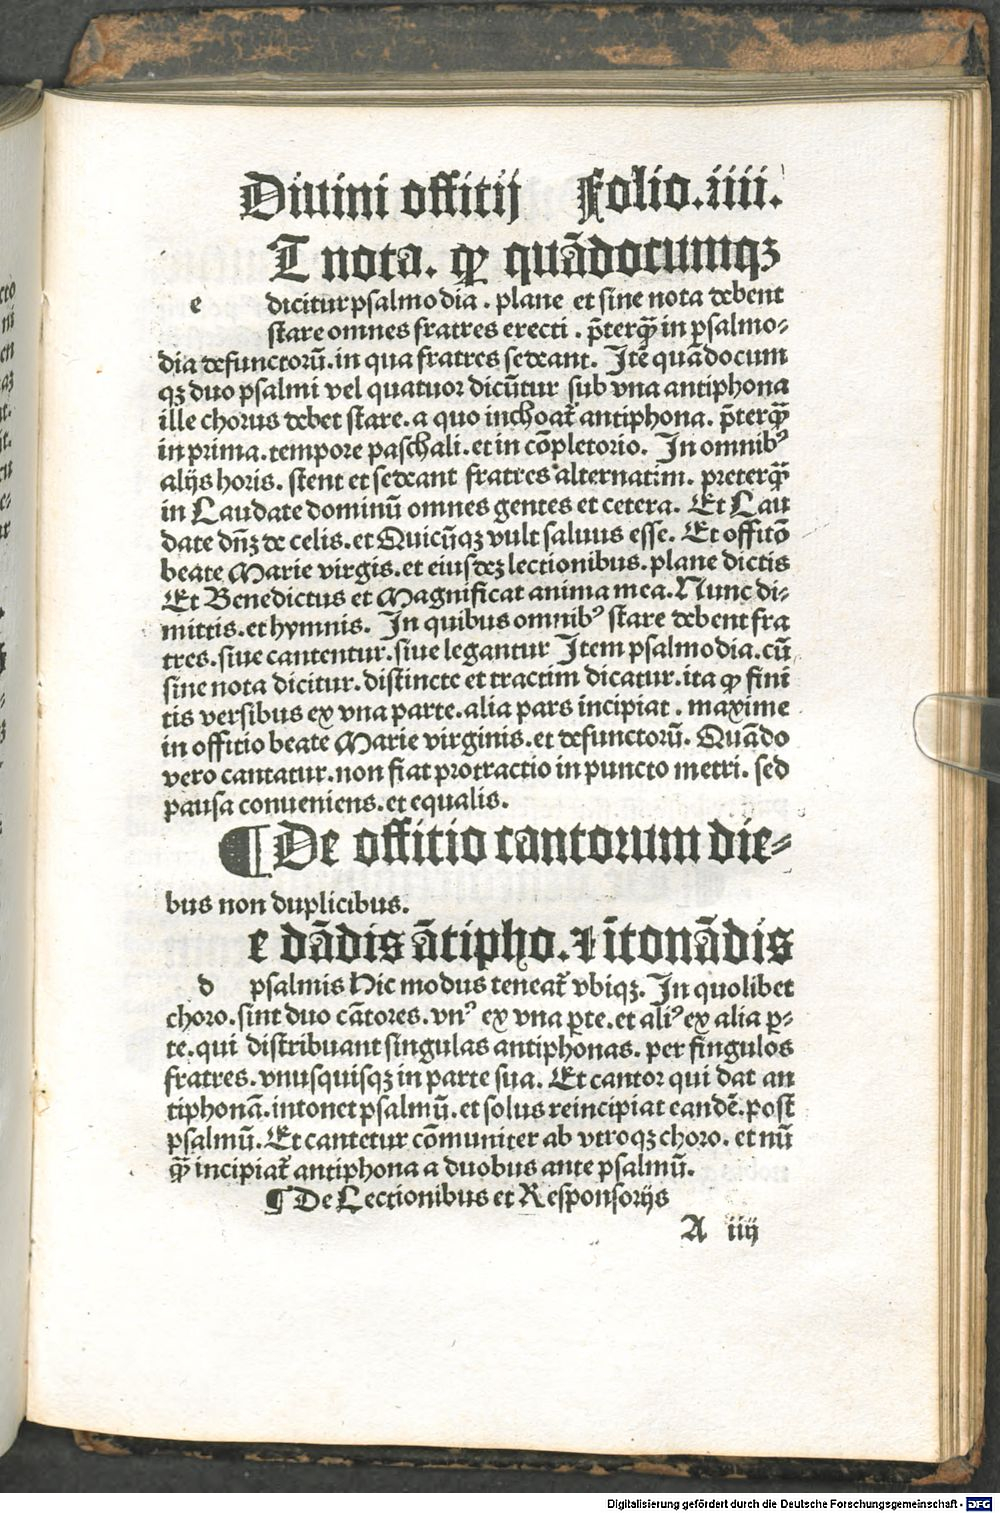 Diuini offitij Folio.iiii.
T nota. ꝙ quādocumqꝫ
e dicitur psalmodia . plane et sine nota debent
stare omnes fratres erecti . p̄terqꝫ̄ in psalmo⸗
dia defunctorū.in qua fratres sedeant. Itē quādocum
qꝫ duo psalmi vel quatuor dicūtur sub vna antiphona
ille chorus debet stare.a quo inchoat᷑ antiphona. p̄terqꝫ̄
in prima.tempore paschali.et in cōpletorio. In omnibꝰ
alijs horis. stent et sedeant fratres alternatim. preterqꝫ̄
in Laudate dominū omnes gentes et cetera. Et Lau
date dn̄ꝫ de celis.et Quicūqꝫ vult saluus esse. Et offitō
beate Marie virgis.et eiusdeꝫ lectionibus.plane dictis
Et Benedictus et Magnificat anima mea.Nunc di⸗
mittis.et hymnis. In quibus omnibꝰ stare debent fra
tres.siue cantentur.siue legantur Item psalmodia.cū
sine nota dicitur.distincte et tractim dicatur.ita ꝙ fini
tis versibus ex vna parte.alia pars incipiat . maxime
in offitio beate Marie virginis.et defunctorū. Quādo
vero cantatur.non fiat protractio in puncto metri. sed
pausa conueniens.et equalis.
¶ De offitio cantorum die⸗
bus non duplicibus.
e dādis ātipho.⁊ ītonādis
d psalmis Hic modus teneat᷑ vbiqꝫ. In quolibet
choro.sint duo cātores.vnꝰ ex vna ꝑte.et aliꝰ ex alia ꝑ⸗
te.qui distribuant singulas antiphonas. per singulos
fratres.vnusquisqꝫ in parte sua. Et cantor qui dat an
tiphonā.intonet psalmū.et solus reincipiat eandē.post
psalmū.Et cantetur cōmuniter ab vtroqꝫ choro. et nū
qꝫ̄ incipiat᷑ antiphona a duobus ante psalmū.
¶ De Lectionibus et Responsorijs
A iiij
Digitalisierung gefördert durch die Deutsche Forschungsgemeinschaft - DFG